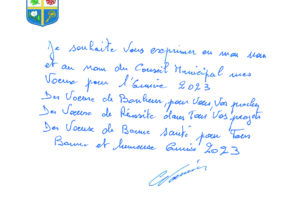 Je souhaite vous exprimer en mon nom
et au nom du Conseil Municipal mes
Voeux pour l'Année 2023
Des Voeux de Bonheur pour Vous, Vos proches
Des Voeux de Réussite dans Tous Vos projets
Des Voeux de Bonne santé pour Tous
Bonne et heureuse Année 2023